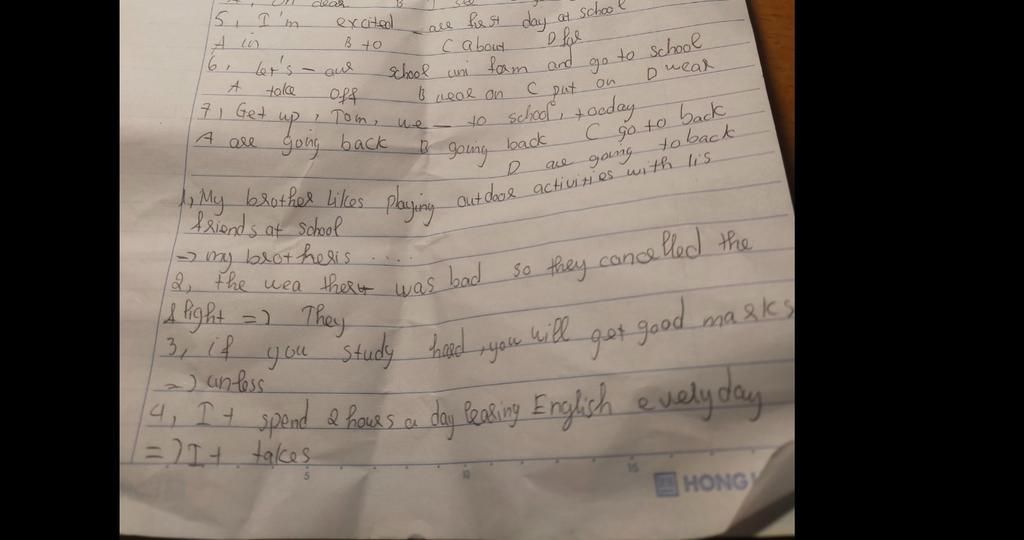 dear B
5, I'm excited _ our first day at school
A in B to C about D for
6, Let's - our school uni form and go to school
A take off B wear on C put on D wear
7, Get up, Tom, we - to school, today
A are going back B going back C go to back
D are going to back
1, My brother likes playing outdoor activities with his
friends at school
=> my brother is ....
2, the wea there was bad so they cancelled the
flight => They
3, if you study hard, you will get good marks
=> unless
4, I + spend 2 hours a day learing English everyday
=> It takes
5 10 15
HONG